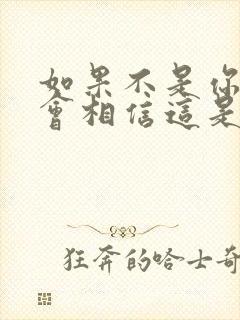 如果不是你
會相信這是
狂奔的哈士奇